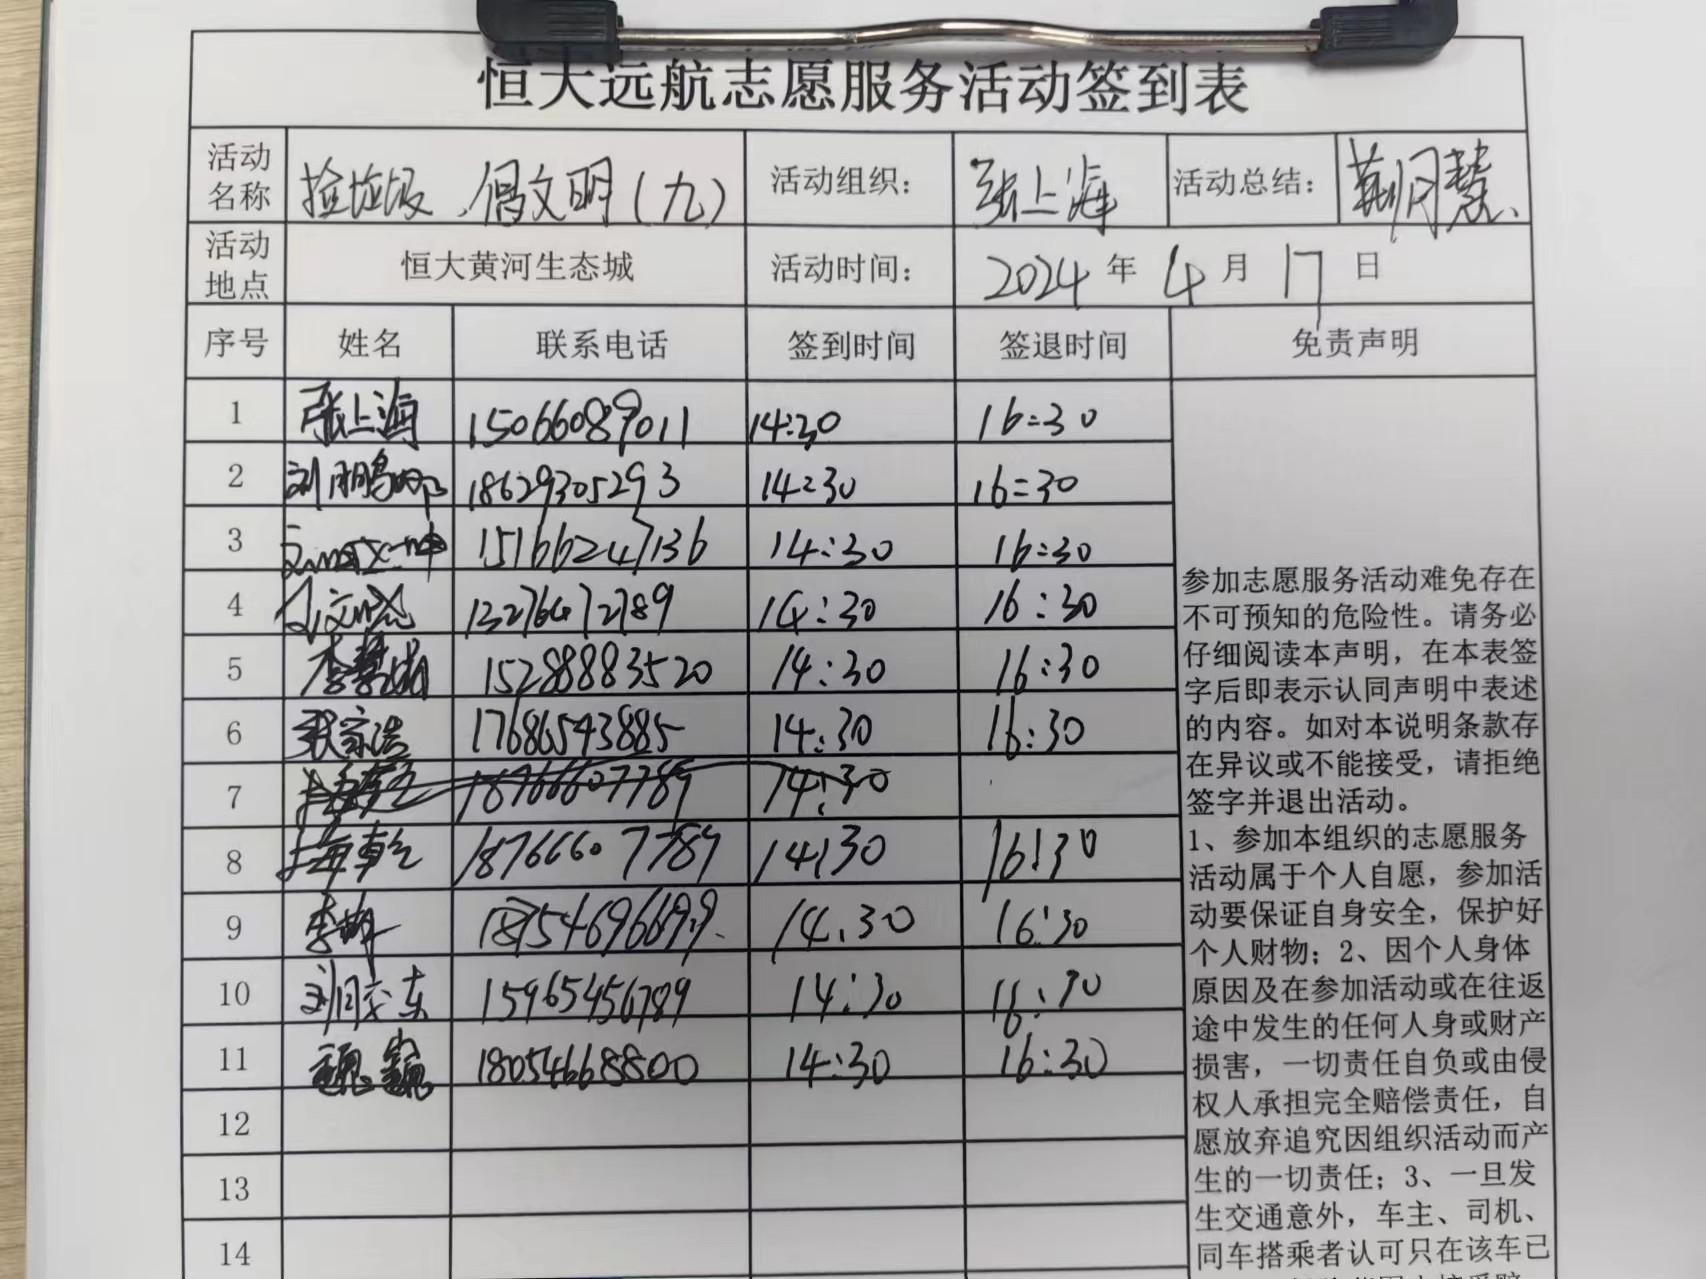 恒大远航志愿服务活动签到表
活动名称 捡垃圾、倡文明（九） 活动组织： 张上海 活动总结： 荆月慧
活动地点 恒大黄河生态城 活动时间： 2024年4月17日
序号 姓名 联系电话 签到时间 签退时间 免责声明
1 张上海 15066089011 14:30 16:30
2 18629305293 14:30 16:30
3 15166247136 14:30 16:30
4 13276472789 14:30 16:30
5 15288883520 14:30 16:30
6 张宗浩 17686543885 14:30 16:30
7 18766607789 14:30
8 18766607789 14:30 16:30
9 18754696699 14:30 16:30
10 15965456789 14:30 16:30
11 魏巍 18054668800 14:30 16:30
12
13
14
参加志愿服务活动难免存在
不可预知的危险性。请务必
仔细阅读本声明，在本表签
字后即表示认同声明中表述
的内容。如对本说明条款存
在异议或不能接受，请拒绝
签字并退出活动。
1、参加本组织的志愿服务
活动属于个人自愿，参加活
动要保证自身安全，保护好
个人财物；2、因个人身体
原因及在参加活动或在往返
途中发生的任何人身或财产
损害，一切责任自负或由侵
权人承担完全赔偿责任，自
愿放弃追究因组织活动而产
生的一切责任；3、一旦发
生交通意外，车主、司机、
同车搭乘者认可只在该车已